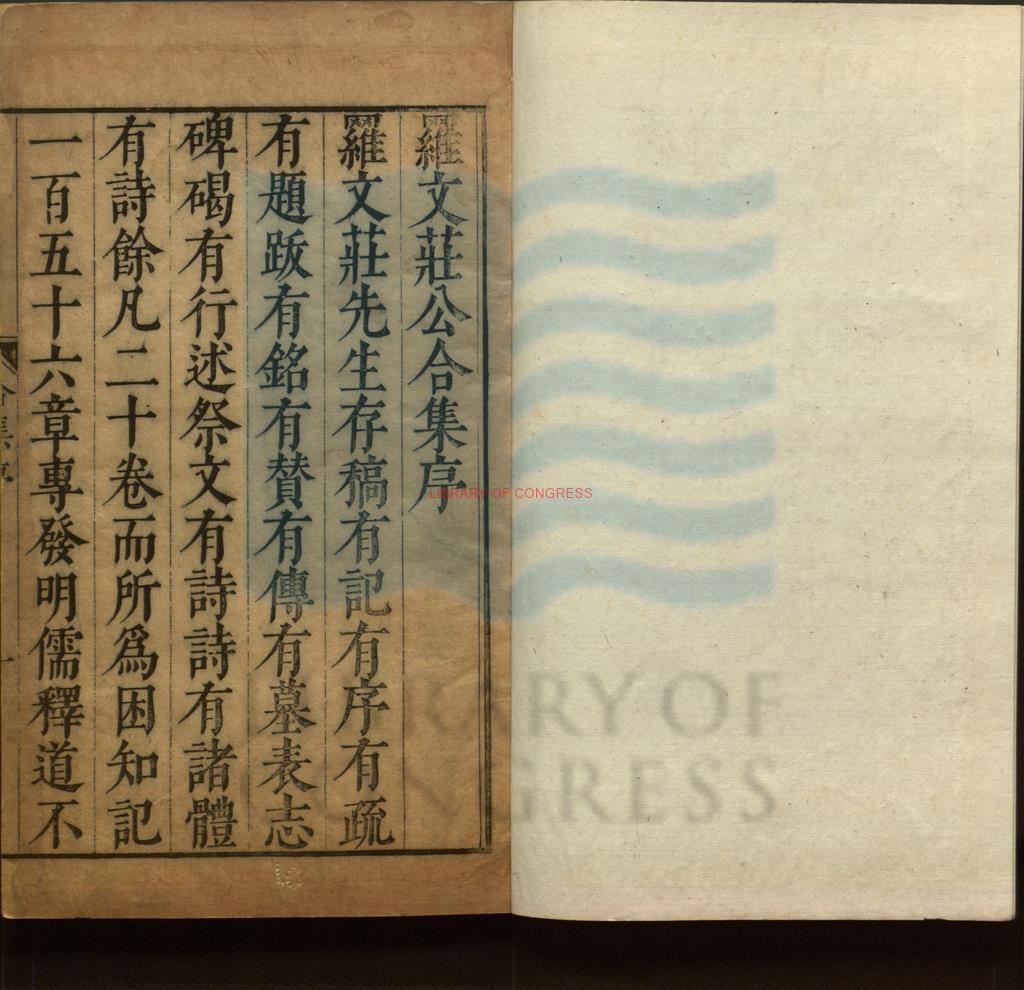 羅文莊公合集序
羅文莊先生存稿有記有序有疏
有題跋有銘有賛有傳有墓表志
碑碣有行述祭文有詩詩有諸體
有詩餘凡二十卷而所爲困知記
一百五十六章專發明儒釋道不
合集序
一
LIBRARY OF CONGRESS
LIBRARY OF
CONGRESS